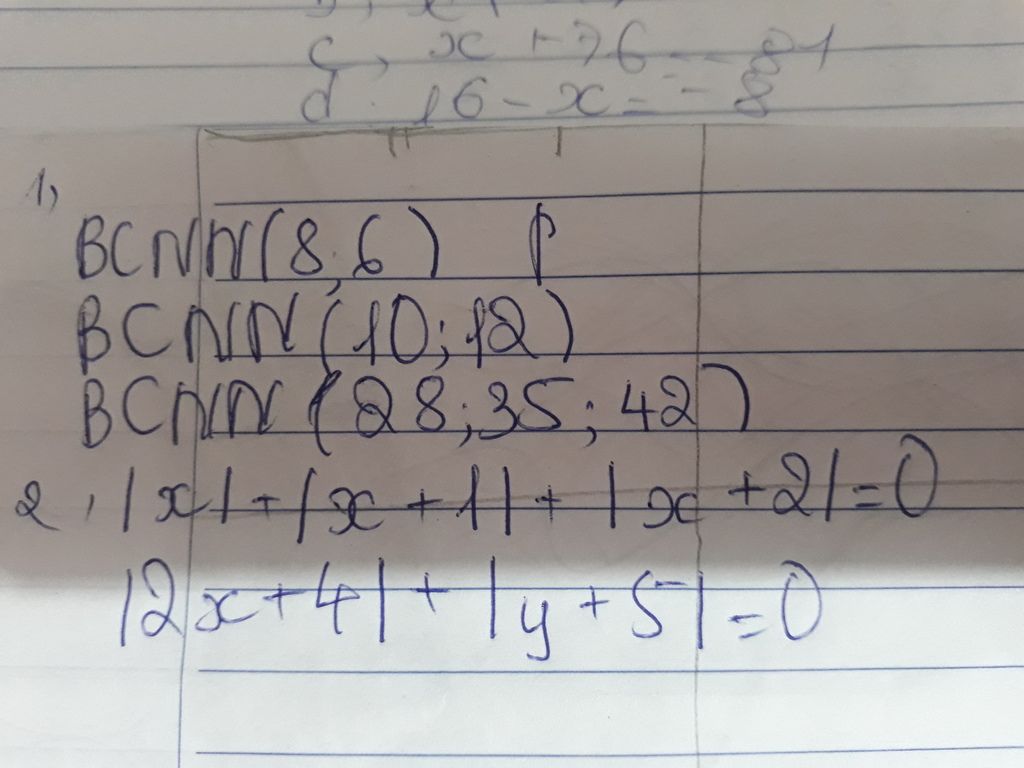 c, x + 76 = - 81
d. 16 - x = - 8
1,
BCNN(8,6)
BCNN(10;12)
BCNN(28;35;42)
2, |x| + |x + 1| + |x + 2| = 0
|2x + 4| + |y + 5| = 0